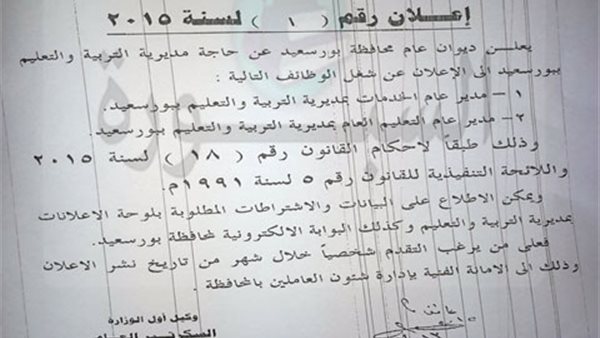 إعلان رقم ( ١ ) لسنة ٢٠١٥
يعلن ديوان عام محافظة بورسعيد عن حاجة مديرية التربية والتعليم
ببورسعيد الى الإعلان عن شغل الوظائف التالية :
١ – مدير عام الخدمات بمديرية التربية والتعليم ببورسعيد.
٢– مدير عام التعليم العام بمديرية التربية والتعليم ببورسعيد.
وذلك طبقاً لاحكام القانون رقم ( ١٨ ) لسنة ٢٠١٥
واللائحة التنفيذية للقانون رقم ٥ لسنة ١٩٩١م.
ويمكن الاطلاع على البيانات والاشتراطات المطلوبة بلوحة الاعلانات
بمديرية التربية والتعليم وكذلك البوابة الالكترونية لمحافظة بورسعيد.
فعلى من يرغب التقدم شخصياً خلال شهر من تاريخ نشر الاعلان
وذلك الى الامانة الفنية بإدارة شئون العاملين بالمحافظة .
وكيل أول الوزارة
السكرتير العام